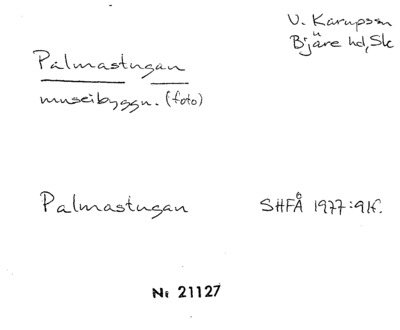 V. Karupssn
Bjäre hd, Sk
Palmastugan
museibyggn. (foto)
Palmastugan SHFÅ 1977:91f.
Ni 21127